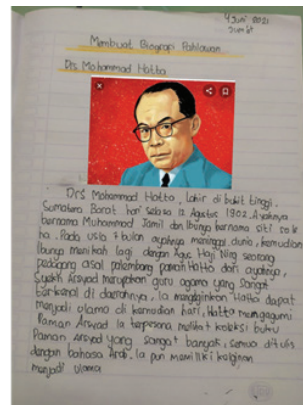 4 Juni 2021
Jum'at
Membuat Biografi Pahlawan
Drs Mohammad Hatta
Drs Mohammad Hatta, Lahir di bukit tinggi,
Sumatera Barat hari selasa 12 Agustus 1902. Ayahnya
bernama Muhammad Jamil dan Ibunya bernama siti sale
ha. Pada usia 7 bulan ayahnya meninggal dunia, kemudian
Ibunya menikah lagi dengan Agus Haji Ning seorang
pedagang asal palembang paman Hatta dari ayahnya,
Syekh Arsyad merupakan guru agama yang sangat
terkenal di daerahnya, Ia menginginkan Hatta dapat
menjadi ulama di kemudian hari, Hatta mengagumi
Paman Arsyad Ia terpesona melihat koleksi buku
Paman Arsyad yang sangat banyak, semua ditulis
dengan bahasa Arab. Ia pun memiliki keiginan
menjadi ulama